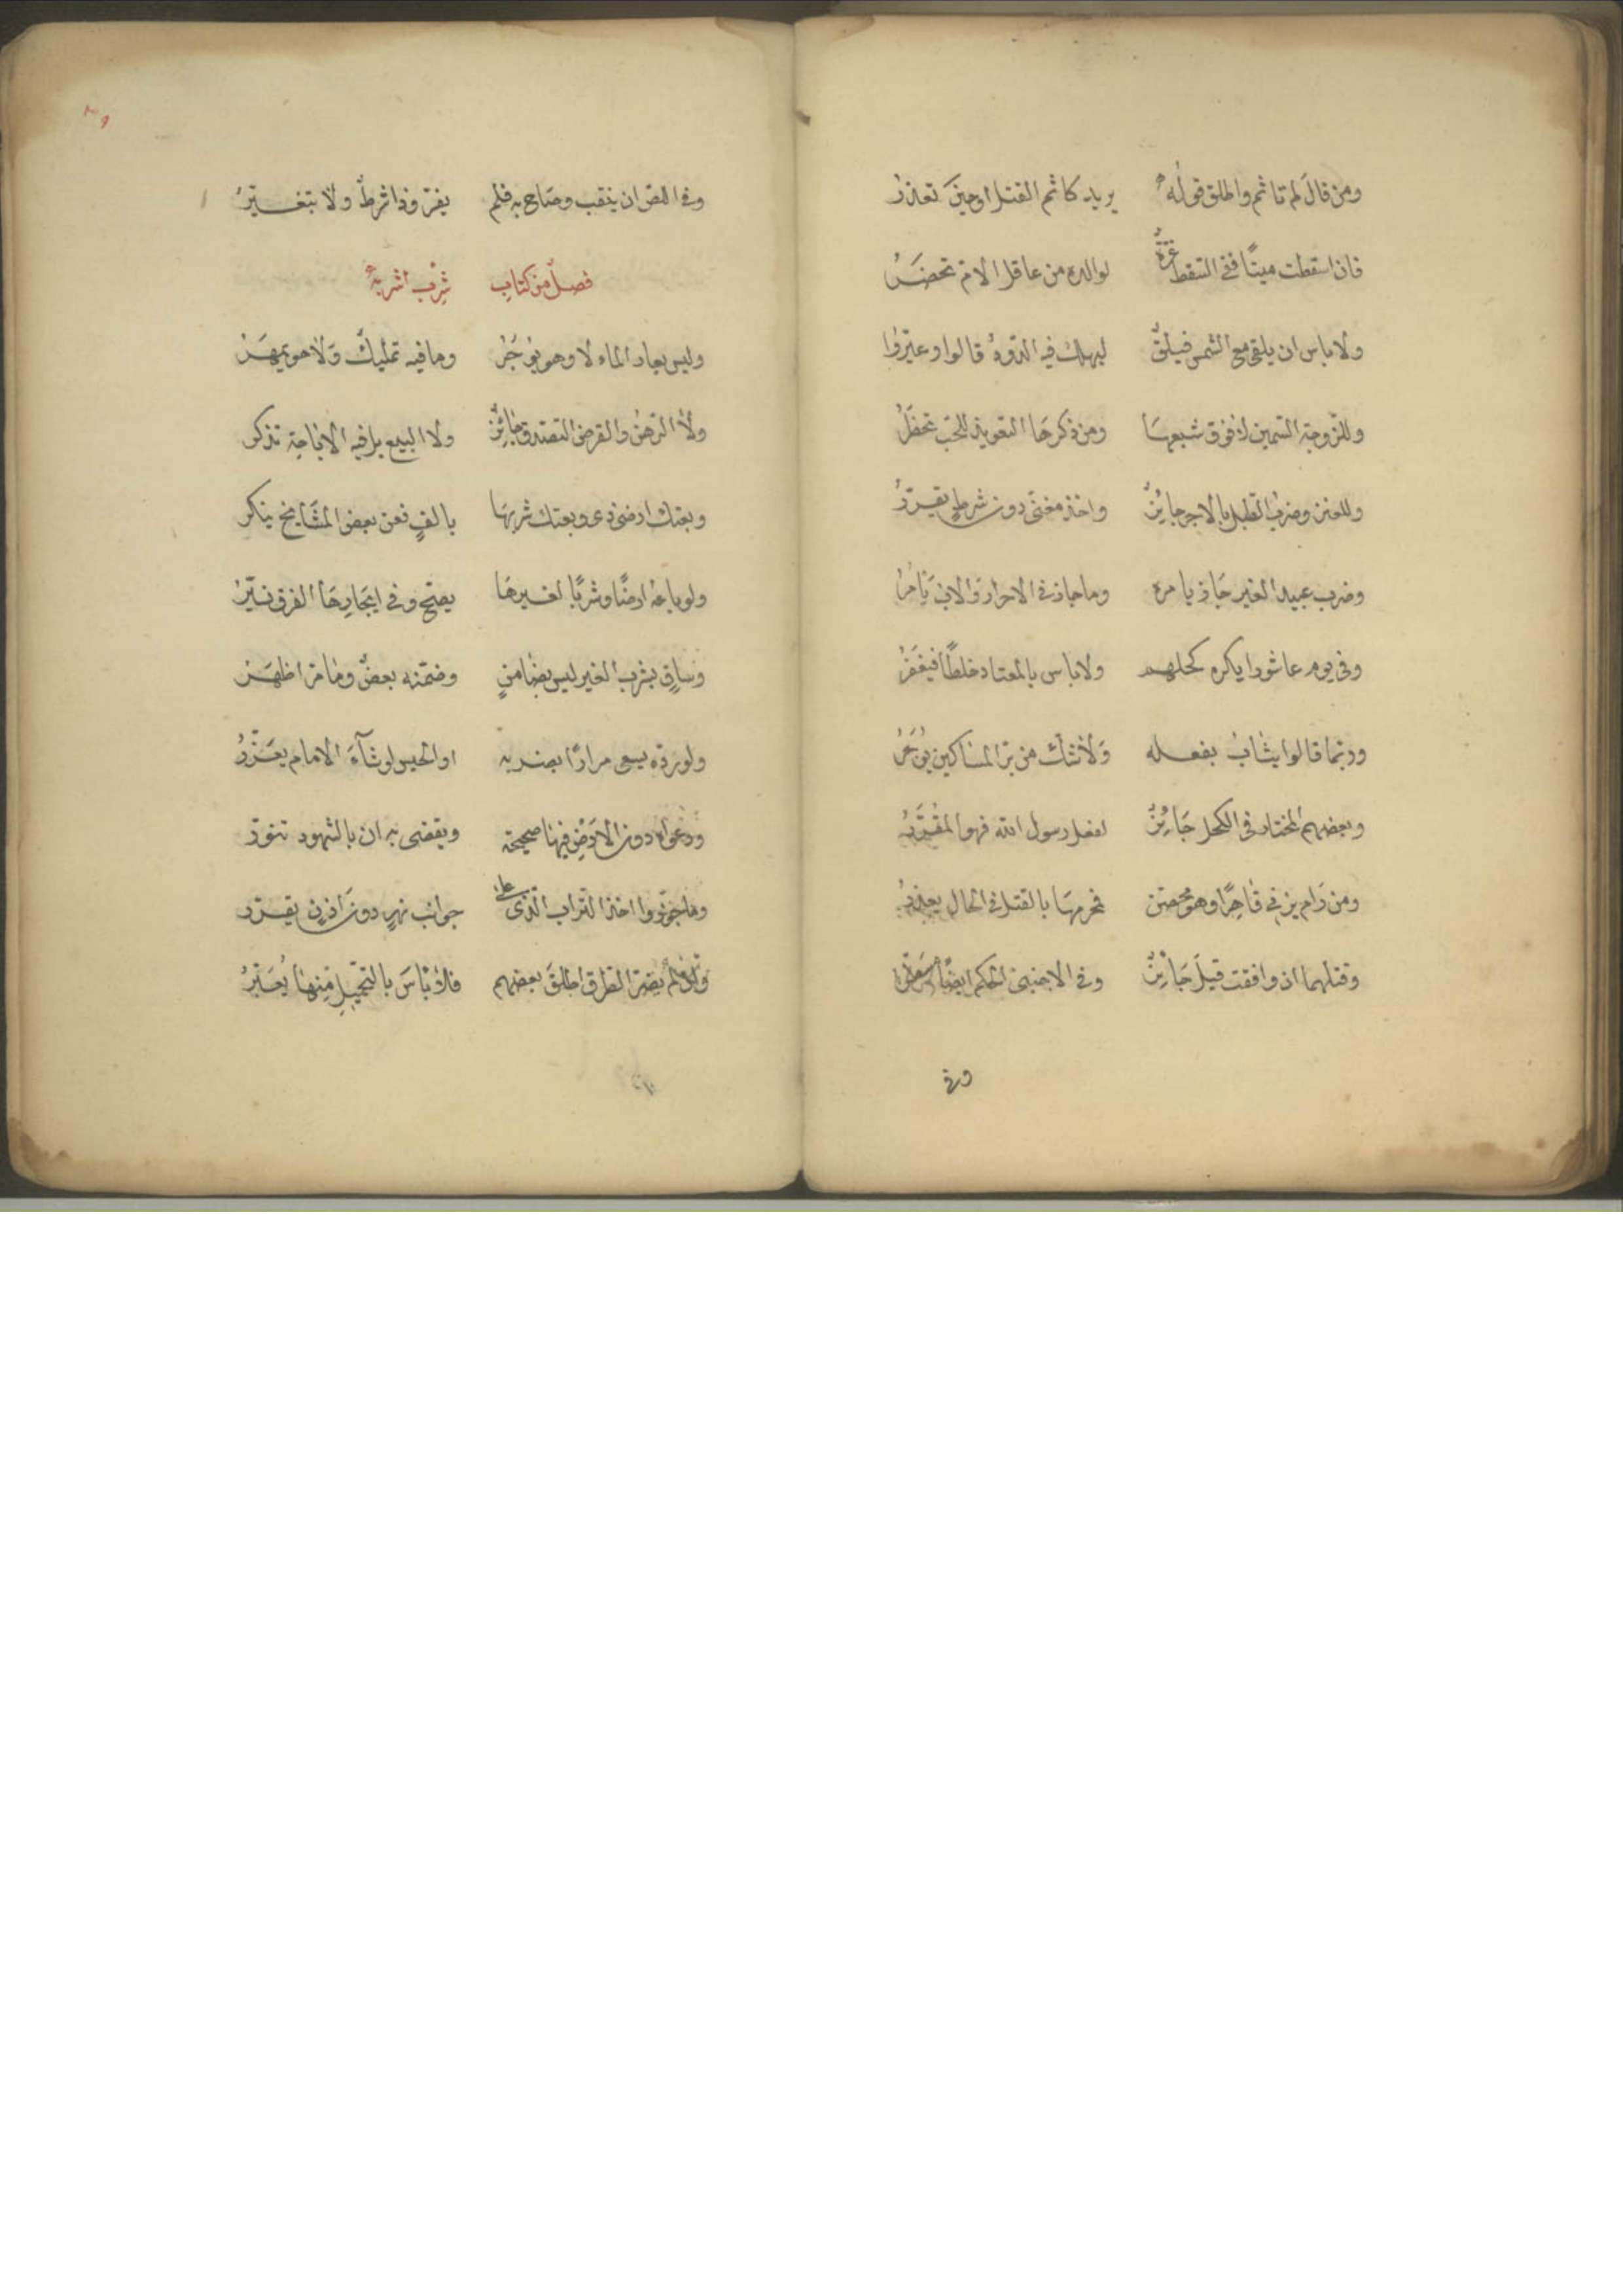 ومن قال لم تاثم واطلق قوله يريد كاثم القتل او حين تعذر
فان اسقطت ميتا ففي السقط غرة لوالده من عاقل الام تحضر
ولا باس ان يلقى مع الشمس فيلق ليهلك فيه الدود قالوا وعيروا
وللزوجة التسمين لا فوق شبعها ومن ذكرها التعويذ للحب تحظر
وللعنز وضرب الطبل بالاجر جايز واخذ مغنى دون شرط يقرر
وضرب عبيد الغير جاز بامره وما جاز في الاحرار والاب يامر
وفي يوم عاشورا يكره كحلهم ولا باس بالمعتاد خلطا فيغفر
وربما قالوا يثاب بفعله ولا شك من بر المساكين يوجر
وبعضهم المختار في الكحل جايز لفعل رسول الله فهو المقرر
ومن رام يزني قاهرا وهو محصن فحرمها بالقتل في الحال يعذر
وقتلهما ان وافقت قيل جايز وفي الاجنبي الحكم ايضا
وفي
٣٩
وفي اللص ان ينقب وصاح به فلم يفر وذا شرط ولا بتغير
فصل من كتاب شرب اشربة
وليس يعار الماء لا وهو يوجر وما فيه تمليك ولا هو يمهر
ولا الرهن والقرض التصدق جائز ولا البيع بل فيه الاباحة تذكر
وبعتك ارضي ذي وبعتك شربها بالف فعن بعض المشايخ ينكر
ولو باعه ارضا وشربا لغيرها يصح وفي ايجارها الفرق نير
وساق بشرب الغير ليس بضامن وضمنه بعض وما مر اظهر
ولو رده يسعى مرارا بضربه او الحبس لو شاء الامام يعزر
ودعواه دون الارض فيها صحيحة ويقضى به ان بالشهود تنور
وما جوزوا اخذ التراب الذي على جوانب نهر دون اذن يقرر
ولو لم يضر الطرق اطلق بعضهم فلا باس بالتحميل منها يعبر